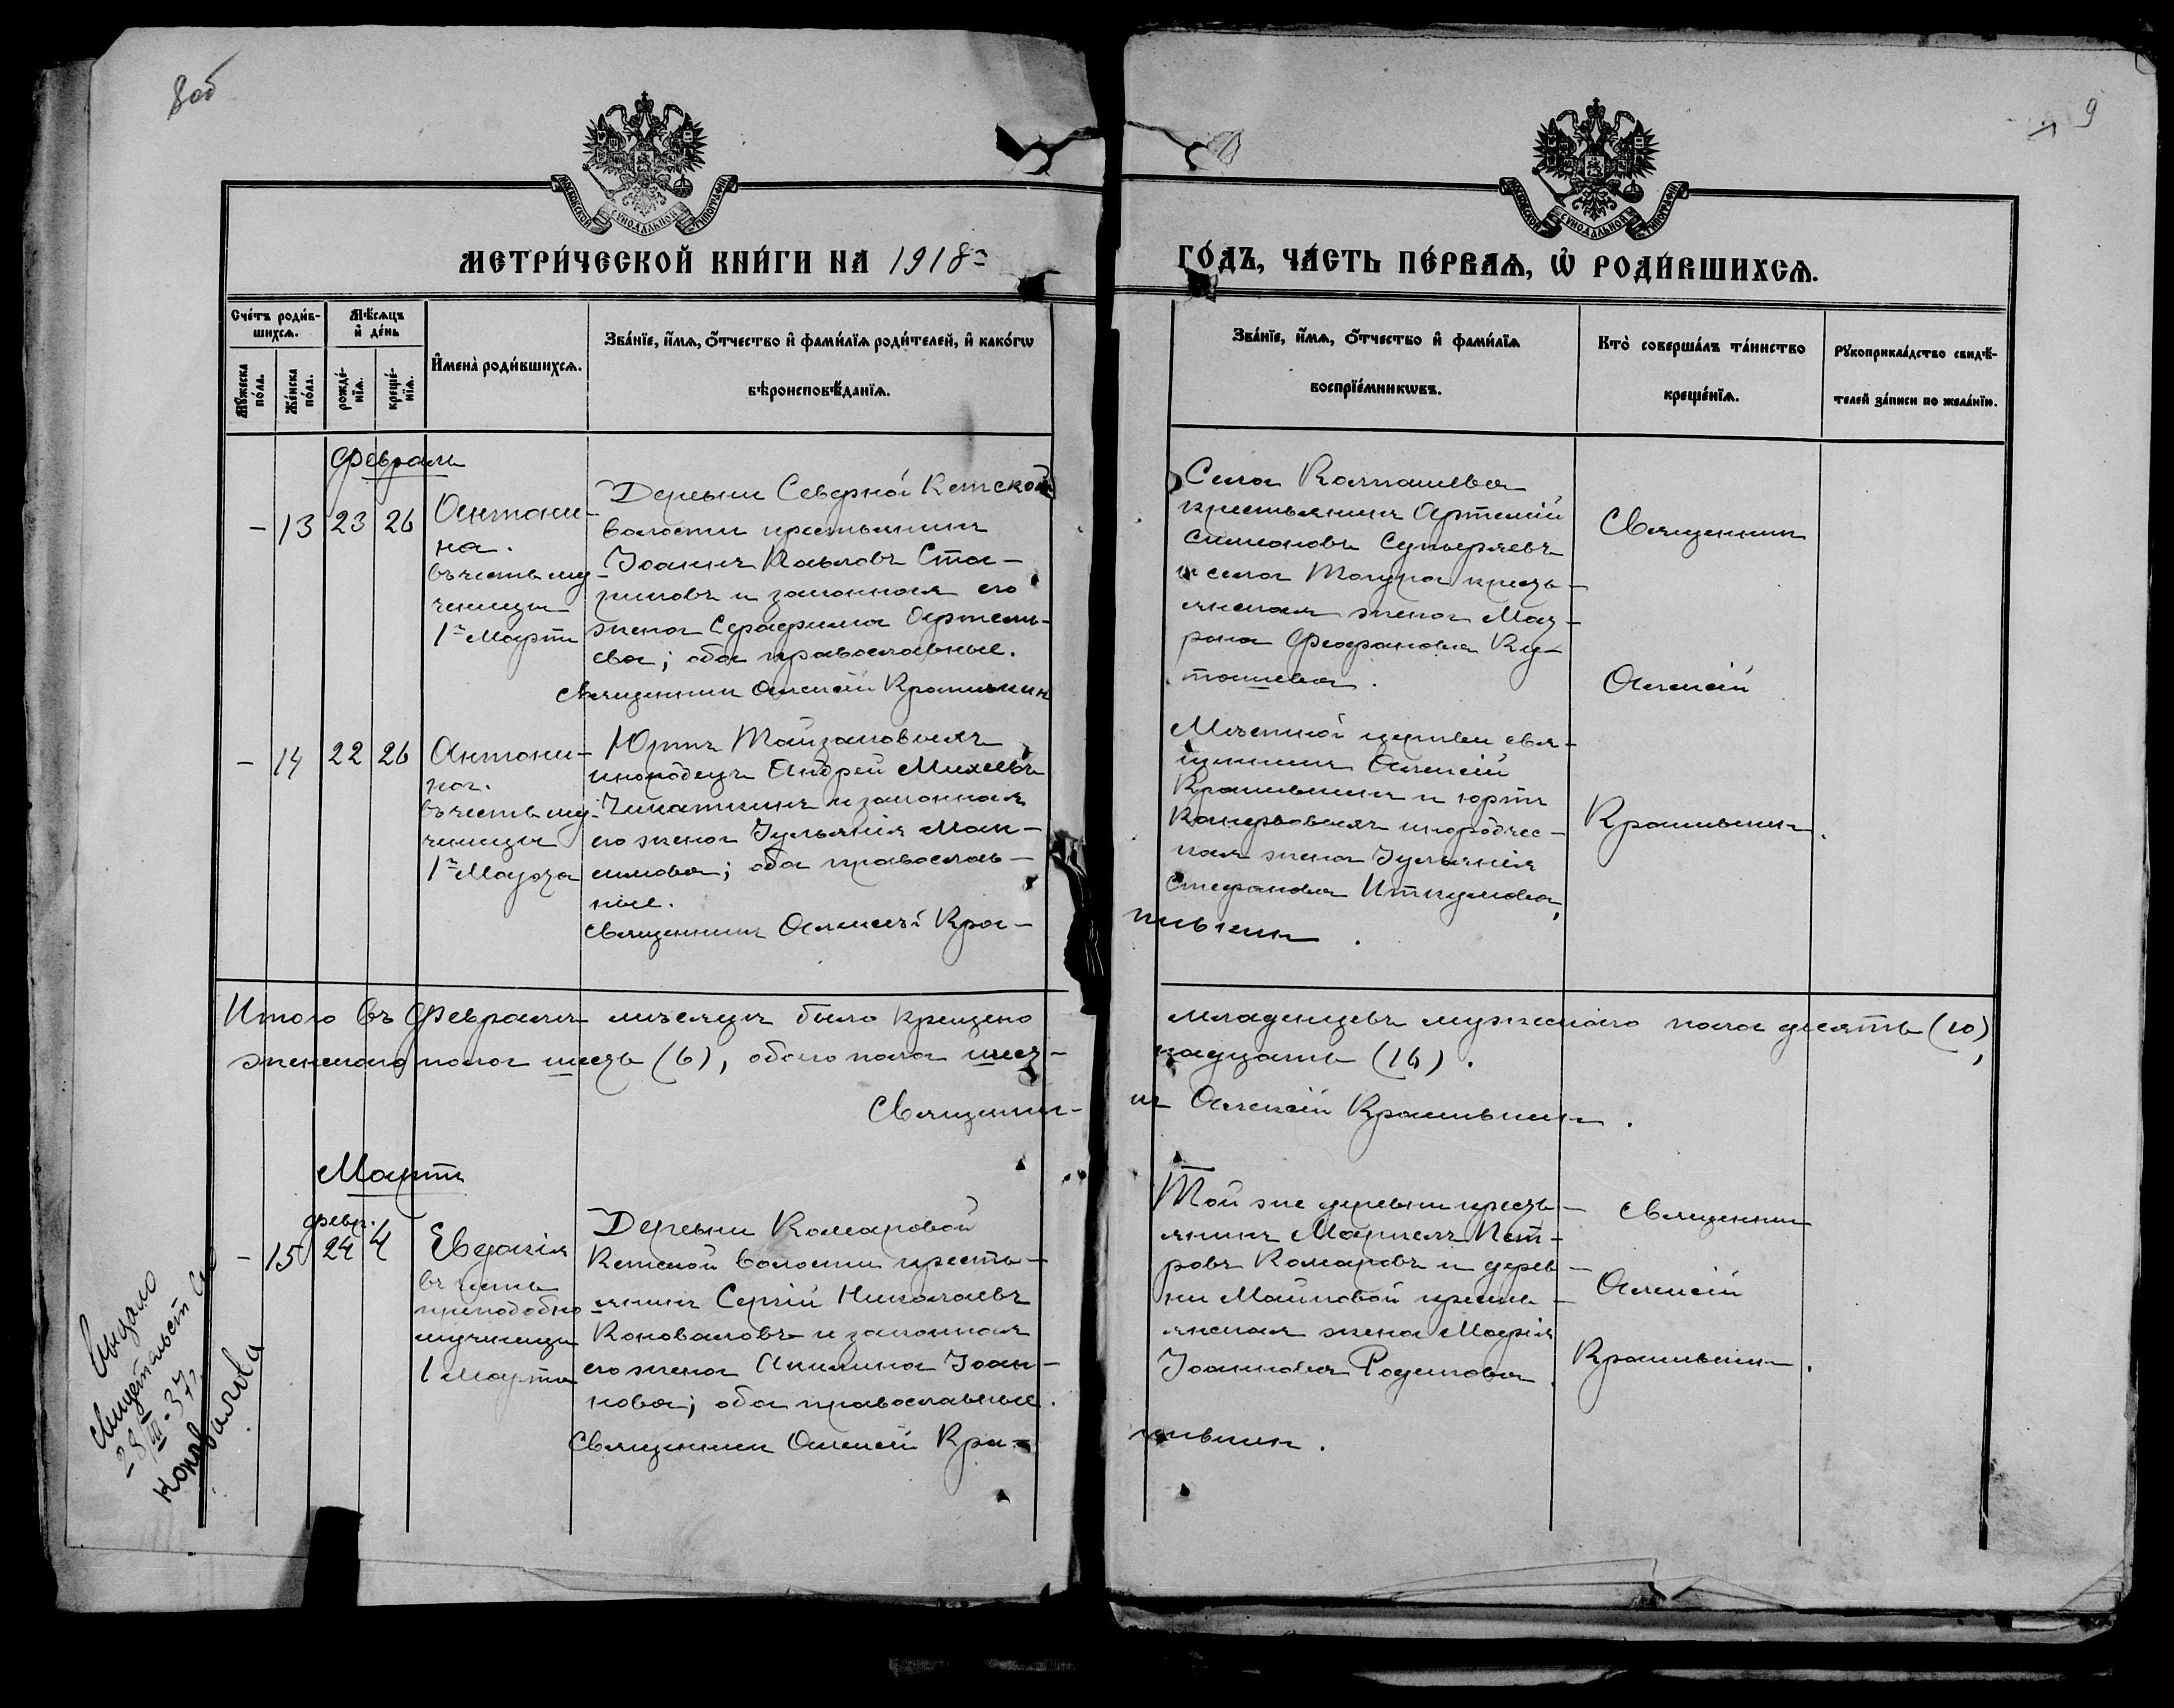 8об
9
МОСКОВСКОЙ СѴНОДАЛЬНОЙ ТИПОГРАФІИ
МОСКОВСКОЙ СѴНОДАЛЬНОЙ ТИПОГРАФІИ
МЕТРИ́ЧЕСКОЙ КНИ́ГИ НА 1918
ГО́ДЪ, ЧА́СТЬ ПЕ́РВАЯ, Ѡ РОДИ́ВШИХСѦ.
Сче́тъ роди́в-
шихсѧ.
Мѣ́сѧцъ
и де́нь
Мꙋ́жеска
по́ла.
Же́нска
по́ла.
рожде́-
нїѧ.
креще́-
нїѧ.
Имена̀ роди́вшихсѧ.
Зва́нїе, и́мѧ, о́тчество и фами́лїѧ роди́телей, и како́гѡ
вѣроисповѣ́данїѧ.
Зва́нїе, и́мѧ, о́тчество и фами́лїѧ
воспрїе́мникѡвъ.
Кто̀ соверша́лъ та́инство
креще́нїѧ.
Рꙋкоприкла́дство свидѣ́-
телей за́писи по жела́нїю.
Февраль
– 13 23 26
Антони-
на.
въ честь му-
ченицы
1го Марта
Деревни Северной Кетской
волости крестьянинъ
Іоаннъ Павловъ Ста-
риковъ и законная его
жена Серафима Артемь-
ева; оба православные.
Священникъ Алексій Крапивкин
Села Колпашева
крестьянинъ Артемій
Симоновъ
и села Тогура кресть-
янская жена Мав-
рона Феофанова
Священник
Алексій
Крапивкин.
– 14 22 26
Антони-
на.
въ честь му-
ченицы
1го Марта
Юртъ
инородецъ Андрей Михеевъ
и законная
его жена Іуліанія Мак-
симова; оба православ-
ные.
Священникъ Алексѣй Кра-
пивкин.
Мѣстной церкви свя-
щенникъ Алексій
Крапивкинъ и юртъ
инородчес-
кая жена Іуліанія
Стефанова
Итого въ Февралѣ мѣсяцѣ было крещено
младенцевъ мужескаго пола десять (10),
женскаго пола шесть (6), обоего пола шест-
надцать (16).
Священни-
къ Алексій Крапивкин.
Мартъ
февр.
– 15 24 4
Евдокія
въ честь
преподобно
мученицы
1 Марта
Деревни Комаровой
Кетской волости кресть-
янинъ Сергій Николаевъ
Коноваловъ и законная
его жена Акилина Іоан-
нова; оба православные.
Священникъ Алексѣй Кра-
пивкин.
Той же деревни кресть-
янинъ Маркелъ Пет-
ровъ Комаровъ и дерев-
ни Майковой кресть-
янская жена Марія
Іоаннова Родикова
Священник
Алексій
Крапивкин.
Выдано
свидетельст
37
Коновалова